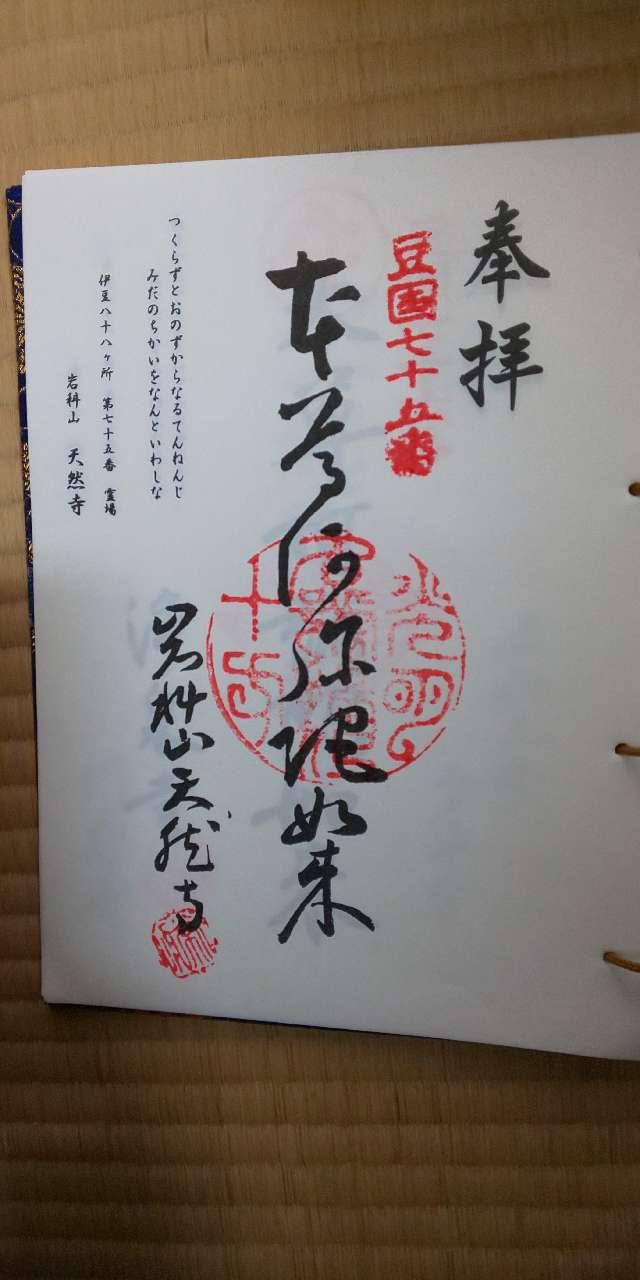 奉拝
豆国七十五番
本尊阿弥陀如来
岩科山天然寺
つくらずとおのずからなるてんねんじ
みだのちかいをなんといわしな
伊豆八十八ヶ所 第七十五番 霊場
岩科山 天然寺